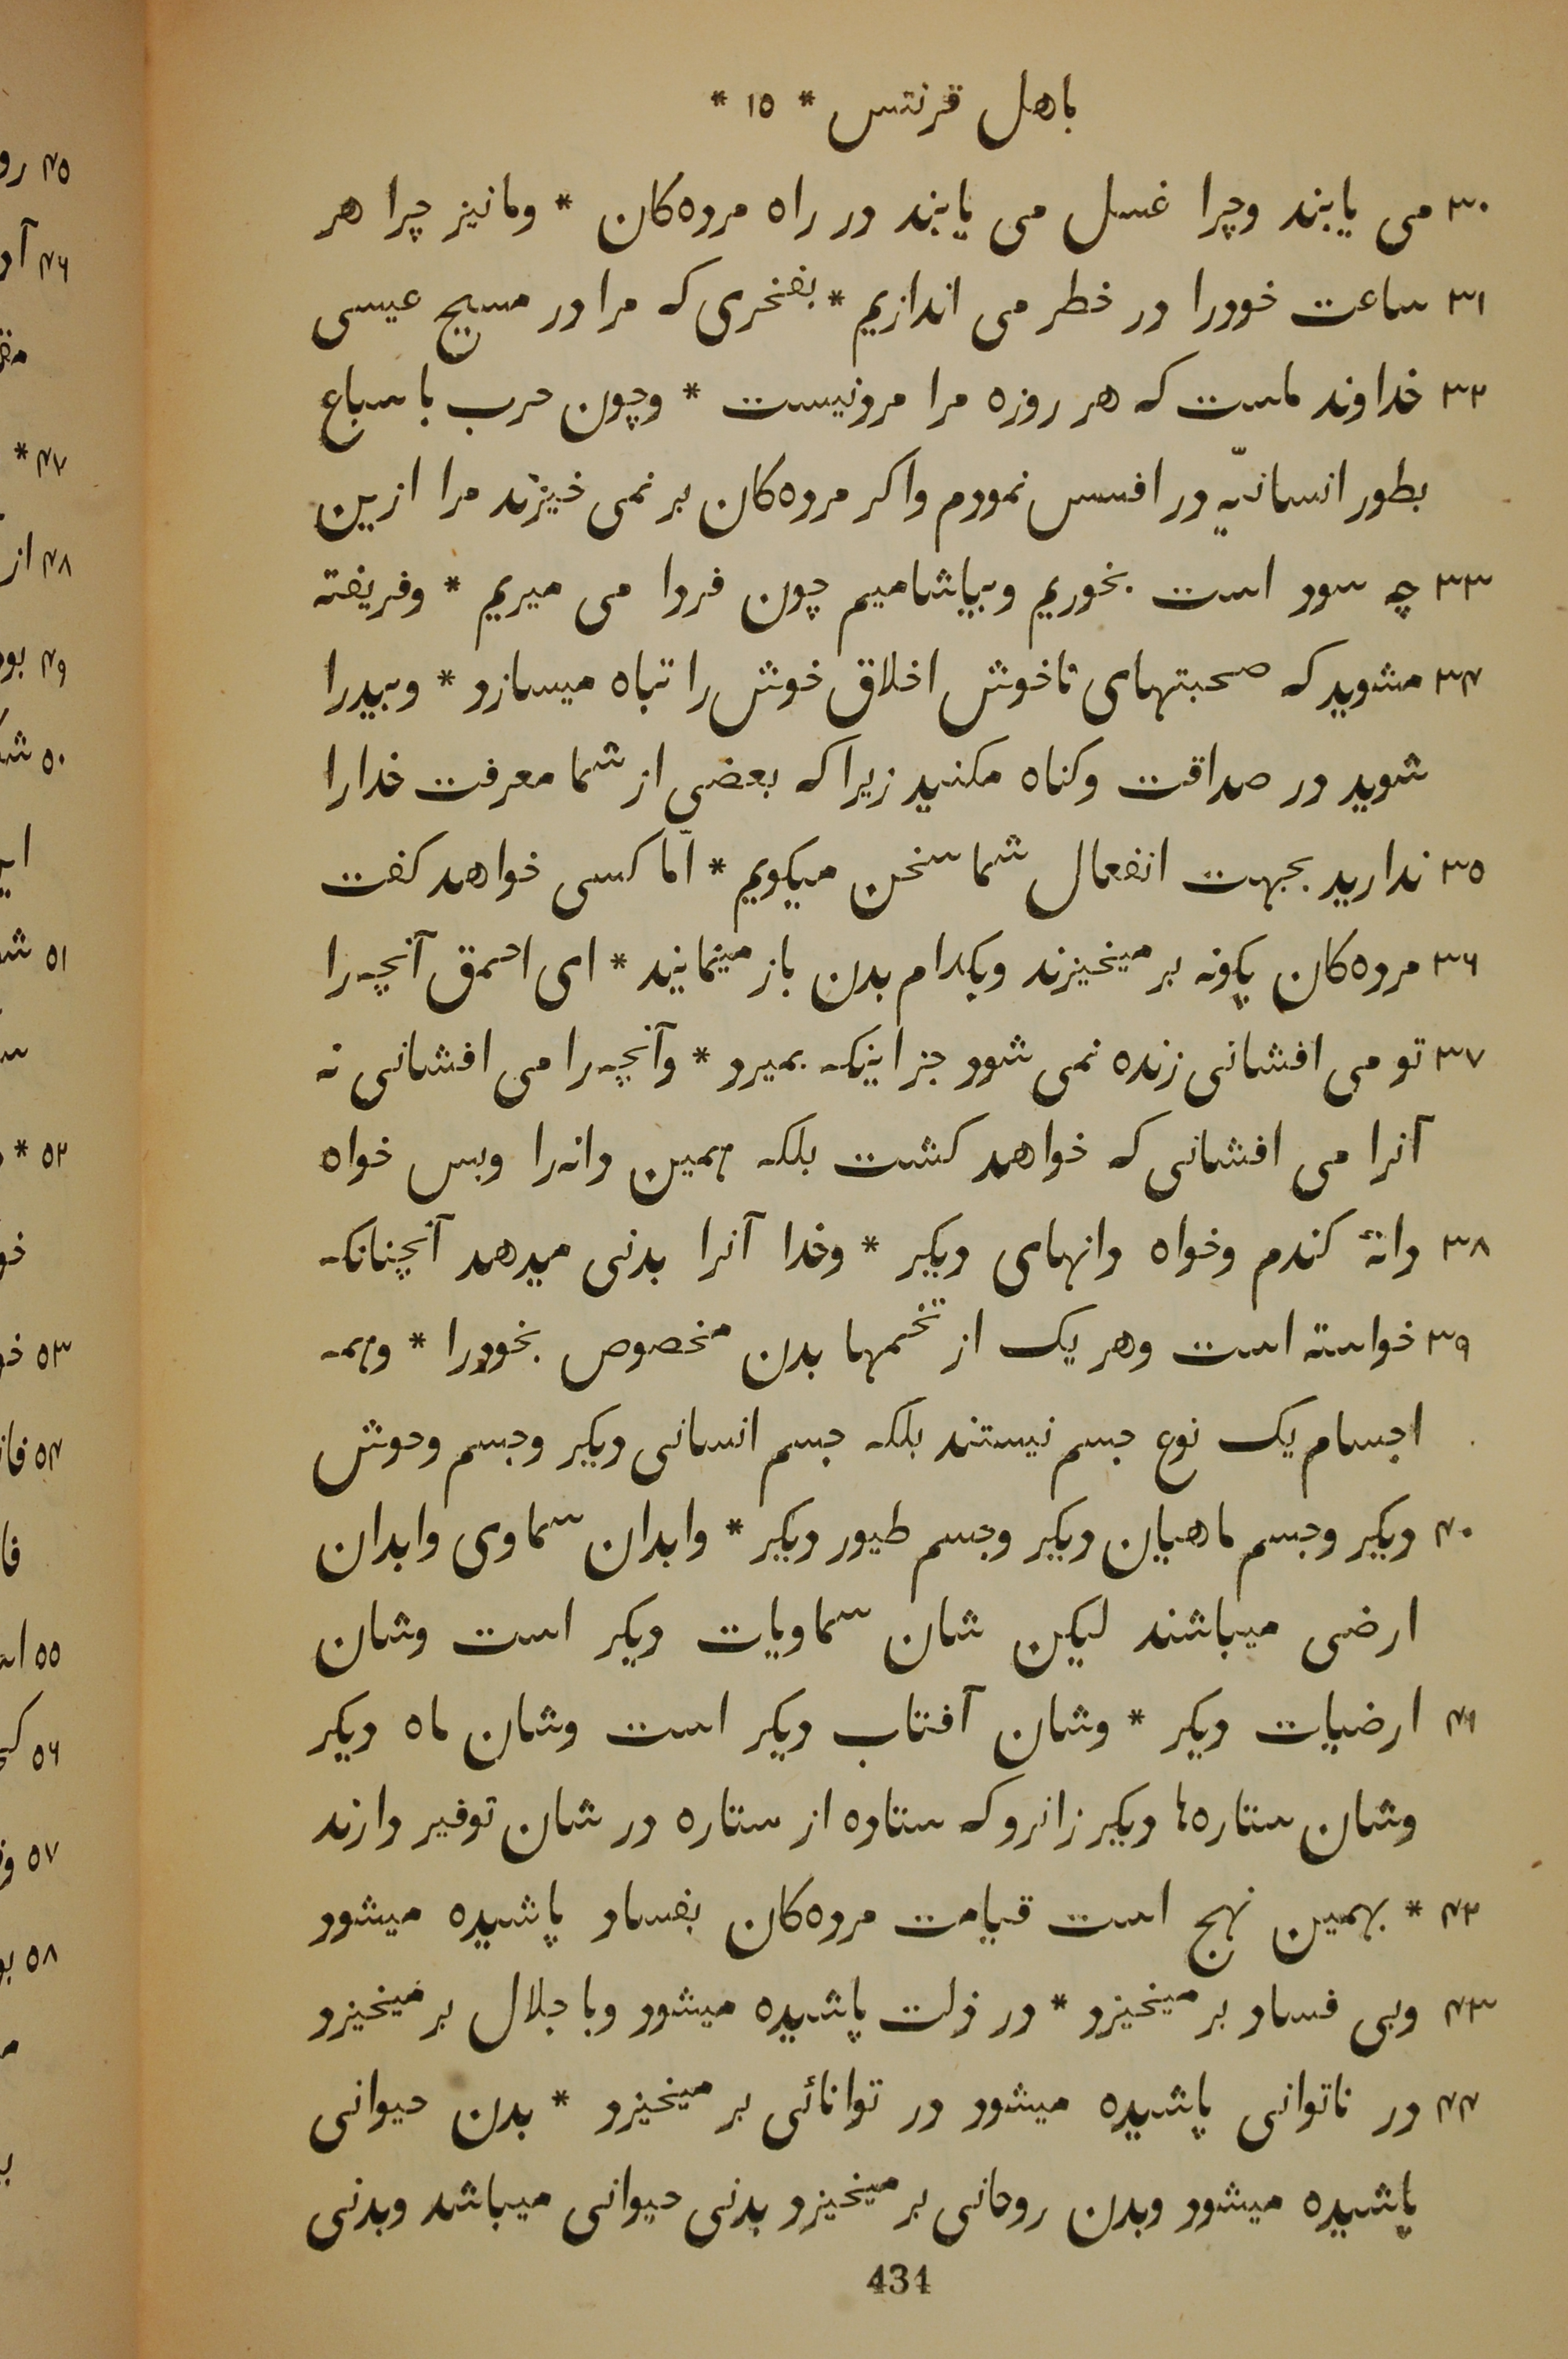 باهل قرنتس * ١٥ *
٣٠ می یابند وچرا غسل می یابند در راه مرده‌کان * ومانیز چرا هر
٣١ ساعت خودرا در خطر می اندازیم * بفخری که مرا در مسیح عیسی
٣٢ خداوند ماست که هر روزه مرا مردنیست * وچون حرب با سباع
بطور انسانیّه در افسس نمودم واکر مرده‌کان بر نمی خیزند مرا ازین
٣٣ چه سود است بخوریم وبیاشامیم چون فردا می میریم * وفریفته
٣٤ مشوید که صحبتهای ناخوش اخلاق خوش را تباه میسازد * وبیدرا
شوید در صداقت وکناه مکنید زیراکه بعضی از شما معرفت خدارا
٣٥ ندارید بجهت انفعال شما سخن میکویم * امّا کسی خواهد کفت
٣٦ مرده‌کان چکونه بر میخیزند وبکدام بدن باز مینمایند * ای احمق آنچه‌را
٣٧ تو می افشانی زنده نمی شود جز اینکه بمیرد * وآنچه‌را می افشانی نه
آنرا می افشانی که خواهد کشت بلکه همین دانه‌را وبس خواه
٣٨ دانهٔ کندم وخواه دانهای دیکر * وخدا آنرا بدنی میدهد آنچنانکه
٣٩ خواسته است وهر یک از تخمها بدن مخصوص بخودرا * وهمه
اجسام یک نوع جسم نیستند بلکه جسم انسانی دیکر وجسم وحوش
٤٠ دیکر وجسم ماهیان دیکر وجسم طیور دیکر * وابدان سماوی وابدان
ارضی میباشند لیکن شان سماویات دیکر است وشان
٤١ ارضیات دیکر * وشان آفتاب دیکر است وشان ماه دیکر
وشان ستاره‌ها دیکر زانرو که ستاده از ستاره در شان توفیر دارند
٤٢ * بهمین نهج است قیامت مرده‌کان بفساد پاشیده میشود
٤٣ وبی فساد بر میخیزد * در ذلت پاشیده میشود وبا جلال بر میخیزد
٤٤ در ناتوانی پاشیده میشود در توانائی بر میخیزد * بدن حیوانی
پاشیده میشود وبدن روحانی بر میخیزد بدنی حیوانی میباشد وبدنی
434